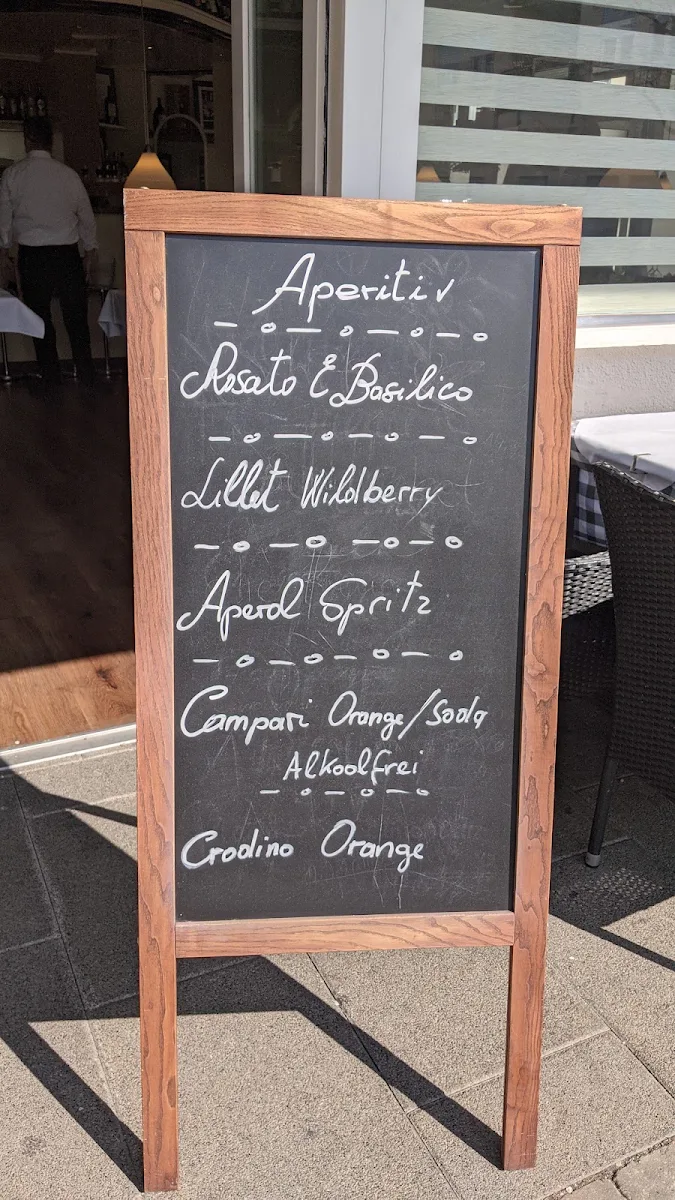 Aperitiv
Rosato E Basilico
Lillet Wildberry
Aperol Spritz
Campari Orange/Soda
Alkoolfrei
Crodino Orange